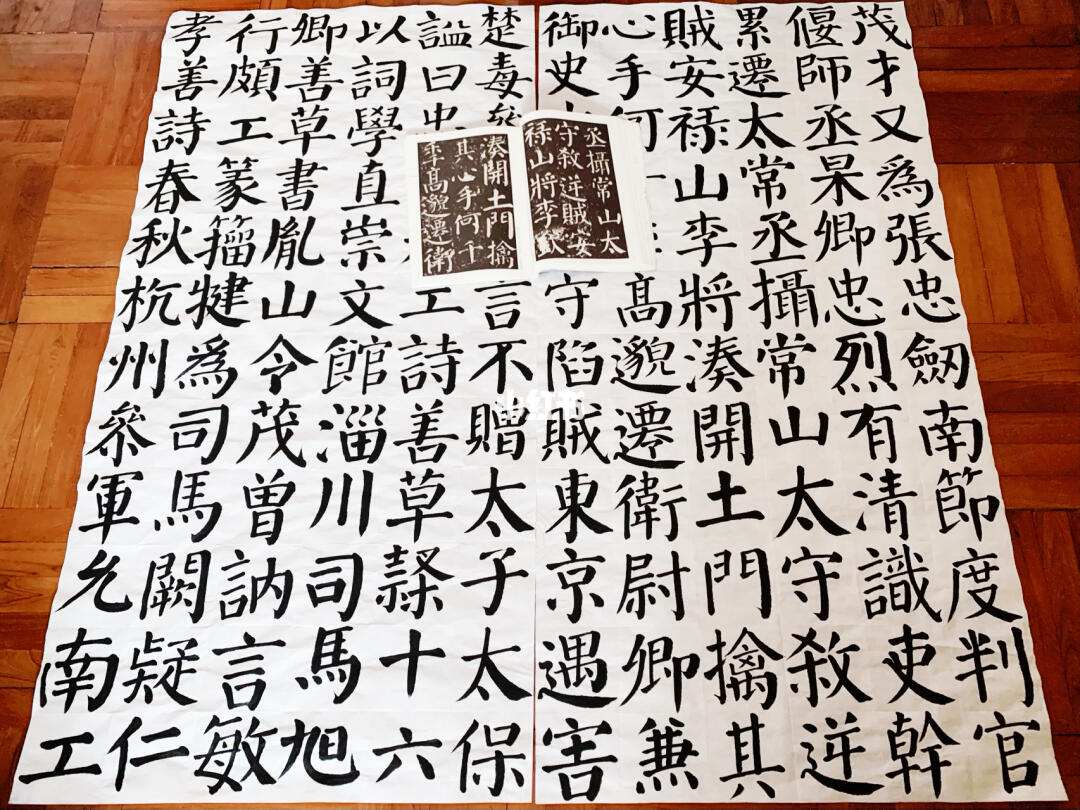 茂才又為張忠劔南節度判官
偃師丞杲卿忠烈有清識吏幹
累遷太常丞攝常山太守殺逆
賊安禄山李將湊開土門擒其
心手何高邈遷衛尉卿兼
御史守陷賊東京遇害
楚毒言不贈太子太保
謚曰忠工詩善草隸十六
以詞學直崇文館淄川司馬旭
卿善草書胤山令茂曽訥言敏
行頗工篆籀犍為司馬闕疑仁
孝善詩春秋杭州叅軍允南工
丞攝常山太
守殺逆賊安
禄山將李欽
湊開土門擒
其心手何千
年高邈遷衛
小红书